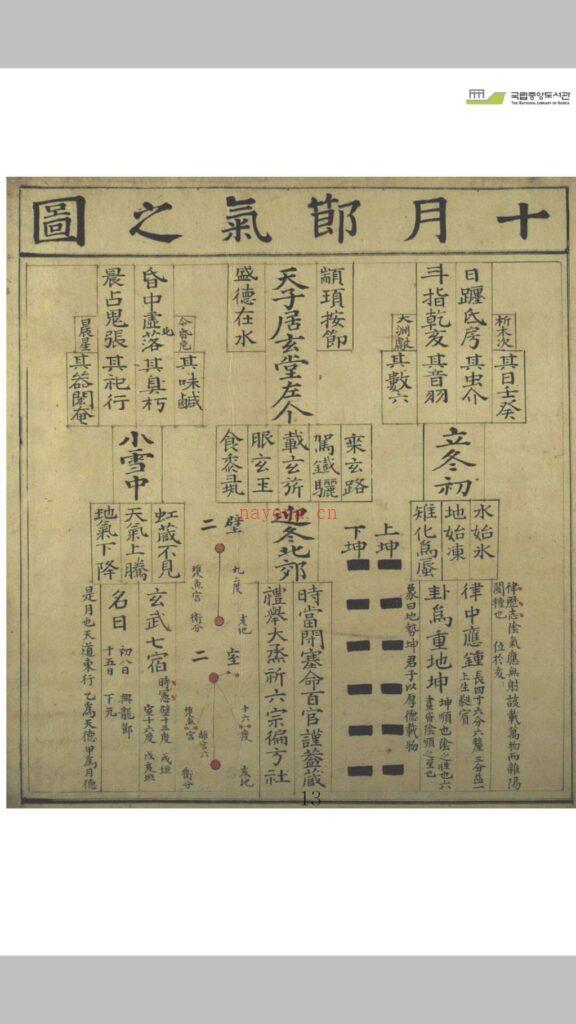 국립중앙도서관
THE NATIONAL LIBRARY OF KOREA
十月節氣之圖
析木次
其日壬癸
日躔氐房 其虫介
斗指乾亥 其音羽
大淵獻
其數六
顓頊按節
天子居玄堂左个
盛德在水
其味鹹
昏中虛危 其臭朽
晨占鬼張 其祀行
日晨星
其器閎奄
立冬初
水始氷
地始凍
雉化爲蜃
乘玄路
駕鐵驪
載玄旂
服玄玉
食黍彘
迎冬北郊
小雪中
虹藏不見
天氣上騰
地氣下降
律歷志陰氣應無射該載萬物而雜陽
閡種也 位於亥
律中應鍾 長四寸六分六釐 三分益一
上生蕤賓
卦爲重地坤 坤順也陰之性也六
畫皆陰順之至也
象曰地勢坤君子以厚德載物
上坤
下坤
時當閉塞命百官謹蓋藏
禮擧大烝祈六宗徧方社
壁
二
九度
亥地
雙魚宮 衛分
室
二
十六度
亥地
雙魚宮
衛分
玄武七宿
室十六度
名日 初八日
十五日 下元
是月也天道東行 乙爲天德甲爲月德
nayona.cn
13